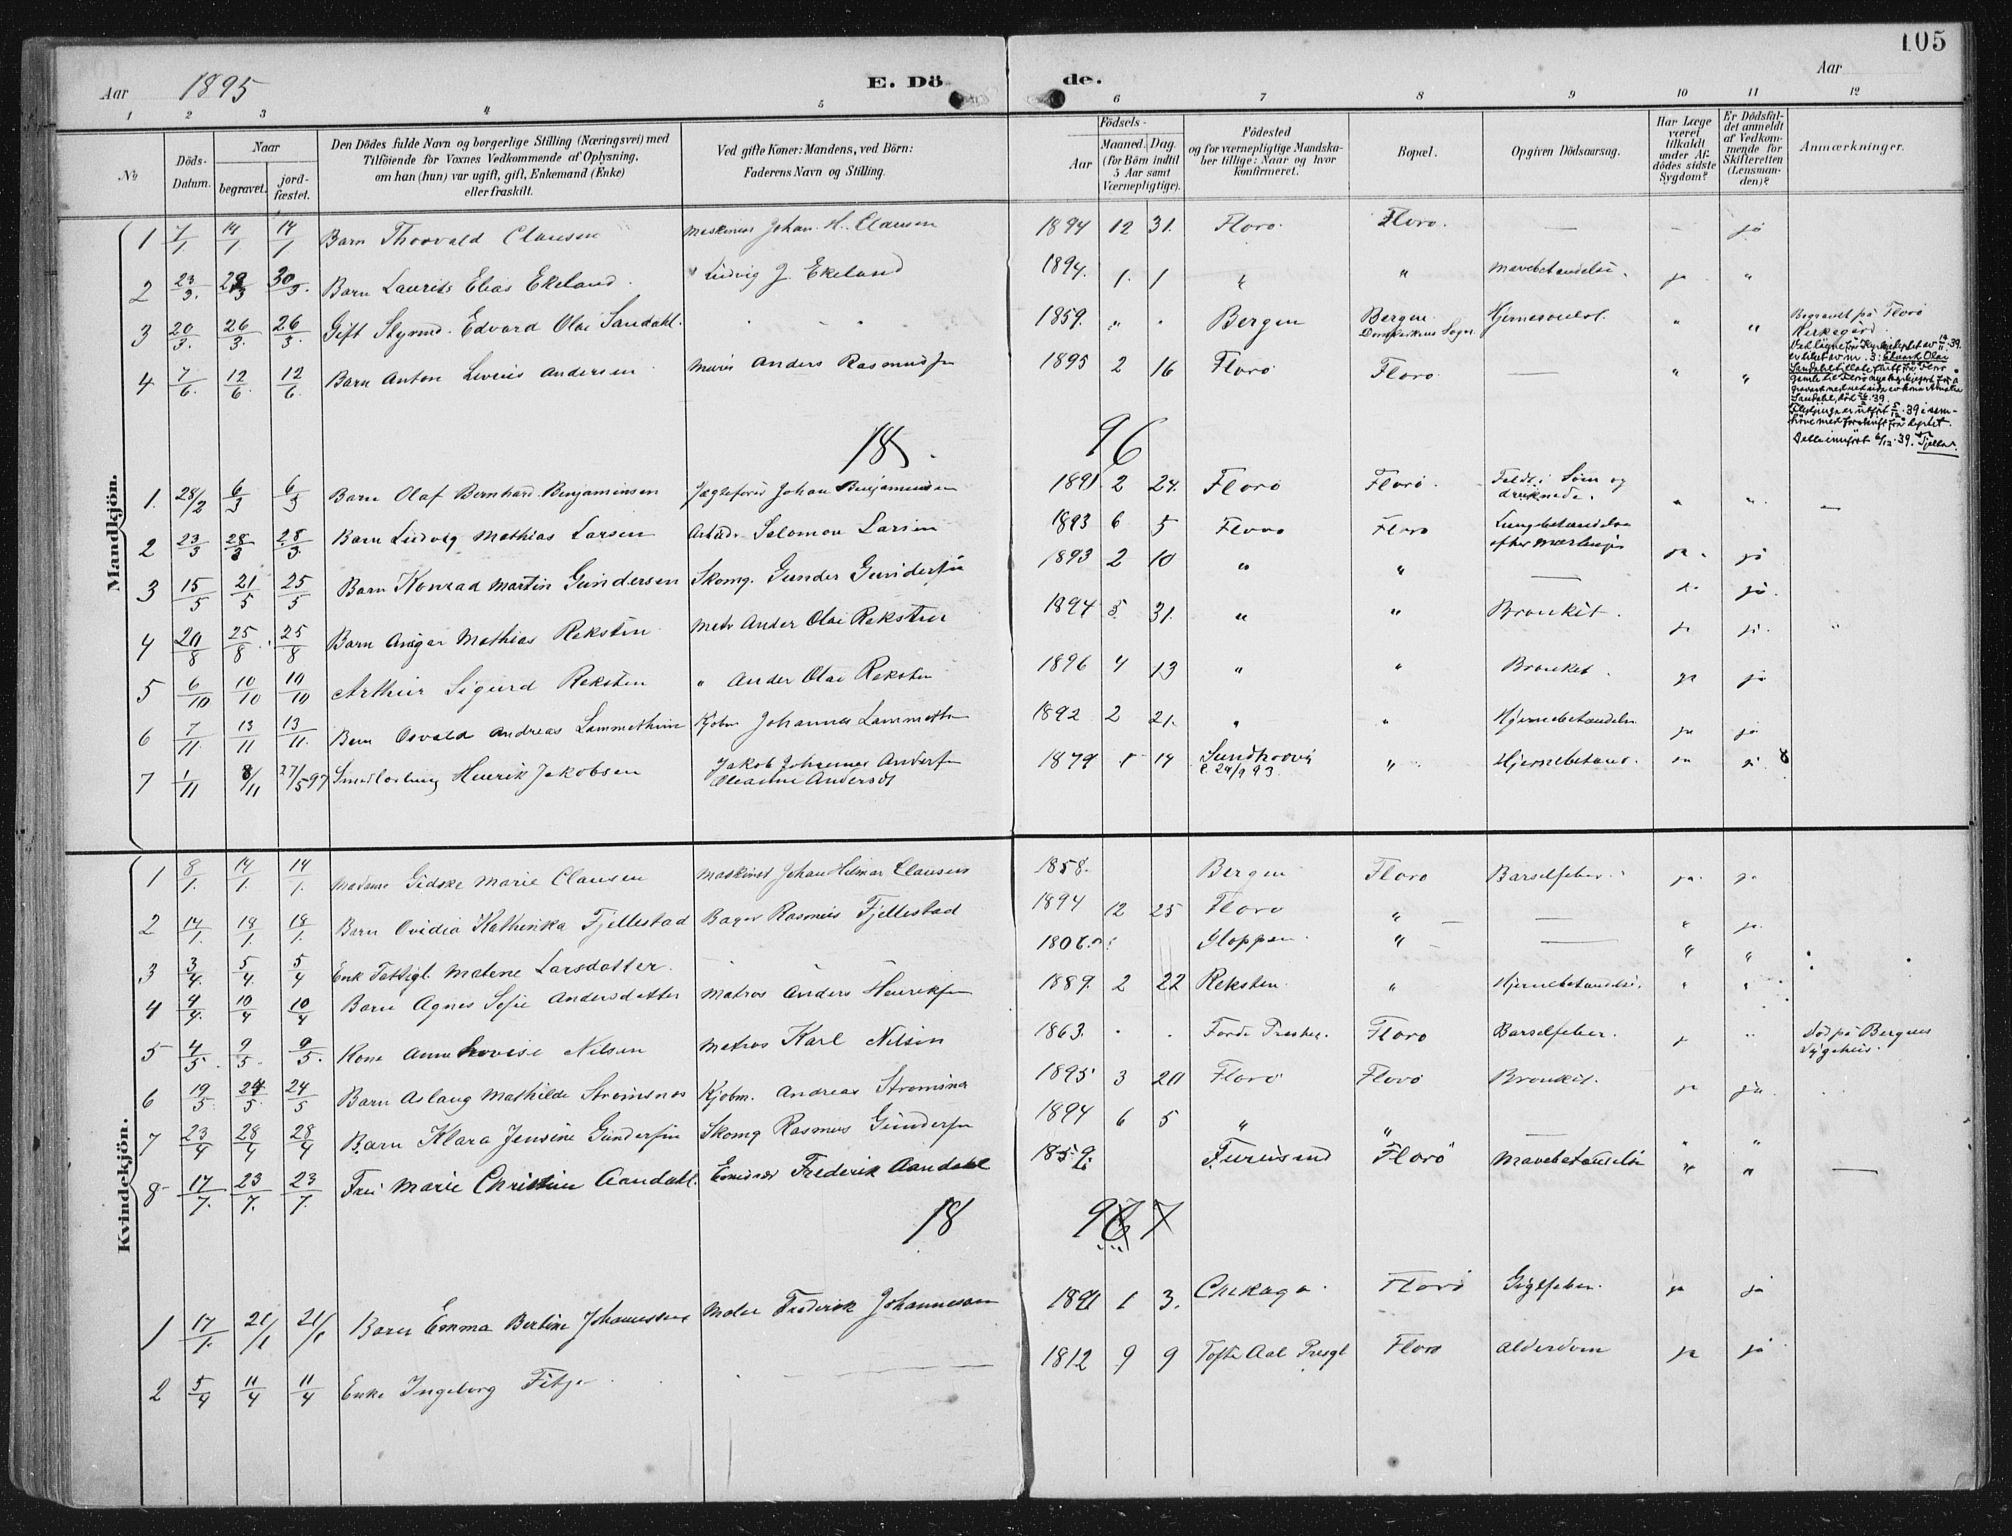 105
Aar 1895 E. Dö de. Aar
1 2 3 4 5 6 7 8 9 10 11 12
No. Döds-Datum. Naar begravet. jord-fæstet. Den Dödes fulde Navn og borgerlige Stilling (Næringsvei) med Tilföiende for Voxnes Vedkommende af Oplysning, om han (hun) var ugift, gift, Enkemand (Enke) eller fraskilt. Ved gifte Koner: Mandens, ved Börn: Faderens Navn og Stilling. Födsels- Aar Maaned. Dag. (for Börn indtil 5 Aar samt Værnepligtige). Födested og for værnepligtige Mandskaber tillige: Naar og hvor konfirmeret. Bopæl. Opgiven Dödsaarsag. Har Læge været tilkaldt under Afdödes sidste Sygdom? Er Dödsfaldet anmeldt af Vedkommende for Skifteretten (Lensmanden)? Anmærkninger.
Mandkjön.
1 7/1 14/1 14/1 Barn Thorvald Clausen Maskinist Johan H. Clausen 1894 12 31. Floro. Floro. — - ja
2 23/3. 29/3 30/3. Barn Laurits Elias Ekeland. " Ludvig J. Ekeland 1894. 1. 1 " " Mavebetændelse. ja "
3 20/3. 26/3. 26/3. Gift Styrmd. Edvard Olai Sandahl. " " " 1859. " " Bergen Bergen Domkirkens Sogn. Hjernesvulst. " " Begravet på Florö Kirkegård.
4 7/6. 12/6. 12/6. Barn Anton Severin Andersen Murer Anders Rasmussen 1895 2 16 Florö Floro. — " "
18 96
1. 28/2 6/3 6/3 Barn Olaf Bernhard Benjaminsen Jægtefører Johan Benjaminsen 1891 2 24. Florö Florö. Faldt i Søen og druknede. " " —
2 23/3 28/3 28/3 Barn Ludvig Mathias Larsen Arbdr. Salomon Larsen 1893 6 5 Florö Florö Lungebetændelse efter Mæslinger ja. ja
3 15/5 21/5 25/5 Barn Konrad Martin Gundersen Skomg. Gunder Gundersen 1893 2 10 " " — ja.
4 20/8 25/8 25/8 Barn Ansgar Mathias Reksten Anders Olai Reksten 1894 5 31. " " Bronkit. ja ja. "
5 6/10 10/10 10/10 Arthur Sigurd Reksten " Anders Olai Reksten 1896 4 13 " " Bronkit. ja ja
6 7/11. 13/11 13/11. Barn Osvald Andreas Lammetun Kjobm Johannes Lammetun 1892 2 21. " " Hjernebetændelse ja ja
7 1/11 8/11 27/5 97 Smedlærling Henrik Jakobsen Jakob Johannes Andersen Oleanne Andersdt 1879 14 " Hjernebetænd.
Kvindekjön.
1 8/1. 14/1. 14/1. Madame Gidske Marie Clausen Maskinist Johan Hilmar Clausen 1858. Bergen Floro Barselfeber. ja. ja
2 14/1. 18/1. 18/1. Barn Ovidia Kathinka Fjellestad Bager Rasmus Fjellestad 1894 12 25 Floro " — — " ja.
3 3/4. 5/4. 5/4 Enk. Fattigl. Malene Larsdatter. - - Gloppen. " — — " "
4 4/4. 10/4 10/4 Barn Agnes Sofie Andersdatter Matros Anders Henriksen 1889. 2 22 Reksten. " Hjernebetændelse. " "
5 4/5. 9/5. 9/5. Kone Anna Lovise Nilsen Matros Karl Nilsen 1863. . . Førde Floro Barselfeber. ja " Död på Bergens Sygehus.
6 19/5. 24/5. 24/5 Barn Aslaug Mathilde Strømsnes Kjobm. Andreas Strømsnes 1895 3 20 Floro Floro Bronkit. ja ja.
7 23/4 28/4 28/4 Barn Klara Jensine Gundersen Skomg Rasmus Gundersen 1894 6 5 " " — " "
8 17/7. 23/7. 23/7. Fru Marie Christine Aandahl. Frederik Aandahl Furusund Florö Mavebetændelse " " —
18 967
1 17/1. 21/1 21/1 Barn Emma Bertine Johannessen Maler Frederik Johannessen 1891 1 3. Chikago. Florö Gigtfeber. ja ja
2 5/4 11/4 11/4 Enke Ingeborg Fitje — 1812 9 9 Florö Alderdom ja ja